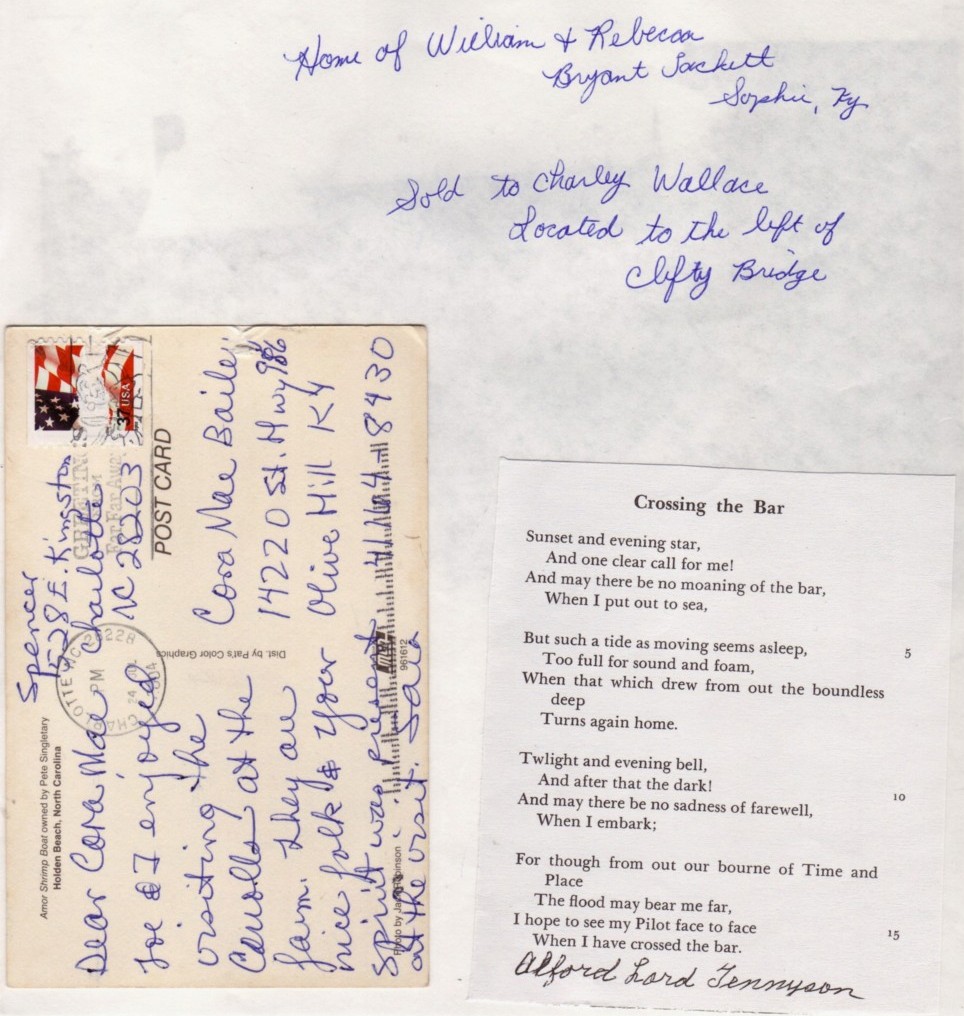 Home of William & Rebecca
Bryant Sackett
Sophie, Ky
Sold to Charley Wallace
Located to the left of
Clifty Bridge
Amor Shrimp Boat owned by Pete Singletary
Holden Beach, North Carolina
Spencer
528 E. Kingston
Charlotte
NC 28203
Dear Cora Mae
Joe & I enjoyed
visiting the
Carrolls at the
farm. They are
nice folk & your
spirit was present
at the visit. Sara
POST CARD
37 USA
GREETINGS
CHARLOTTE NC 28228
PM
24
Dist. by Pat's Color Graphics
Photo by Jack Robinson
961612
Cora Mae Bailey
14220 St. Hwy 986
Olive Hill KY
41164-8430
Crossing the Bar
Sunset and evening star,
And one clear call for me!
And may there be no moaning of the bar,
When I put out to sea,
But such a tide as moving seems asleep, 5
Too full for sound and foam,
When that which drew from out the boundless
deep
Turns again home.
Twlight and evening bell,
And after that the dark!
And may there be no sadness of farewell, 10
When I embark;
For though from out our bourne of Time and
Place
The flood may bear me far,
I hope to see my Pilot face to face 15
When I have crossed the bar.
Alford Lord Tennyson